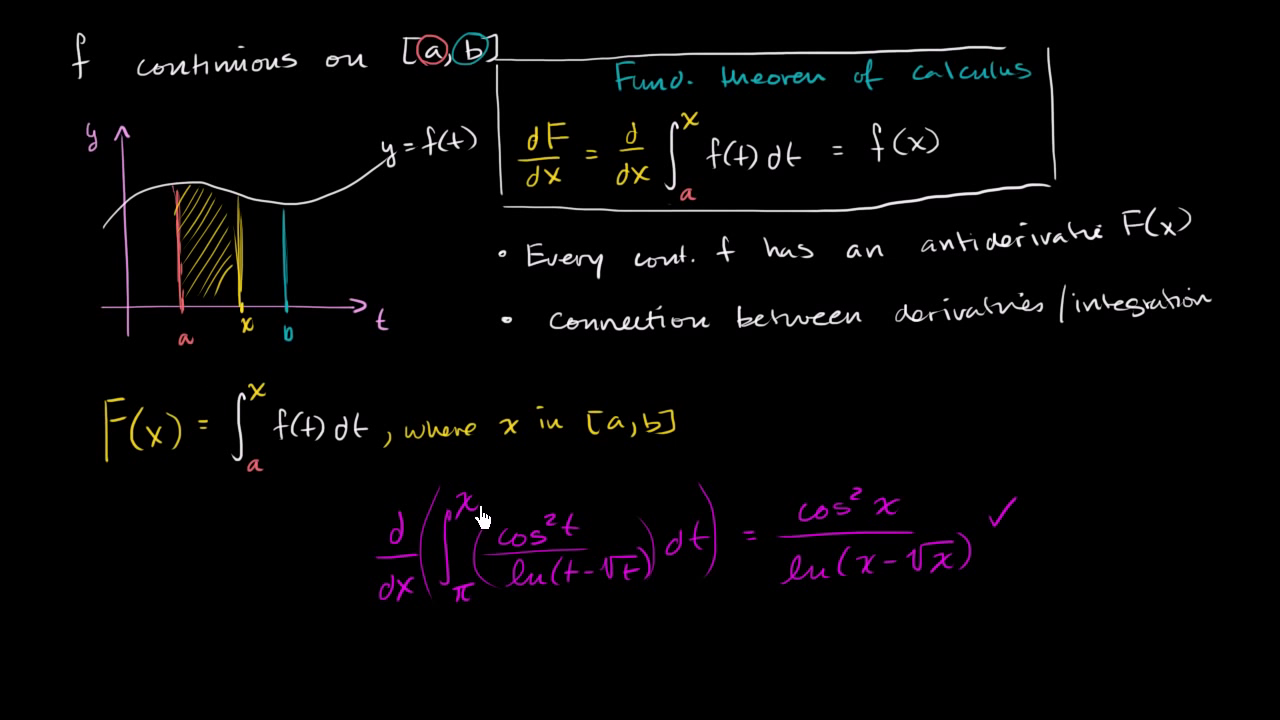 f continuous on [a, b]
Fund. theorem of calculus
dF/dx = d/dx ∫_a^x f(t) dt = f(x)
y
y = f(t)
a x b t
• Every cont. f has an antiderivative F(x)
• Connection between derivatives/integration
F(x) = ∫_a^x f(t) dt, where x in [a, b]
d/dx (∫_π^x (cos²t / ln(t-√t)) dt) = cos²x / ln(x-√x) ✓